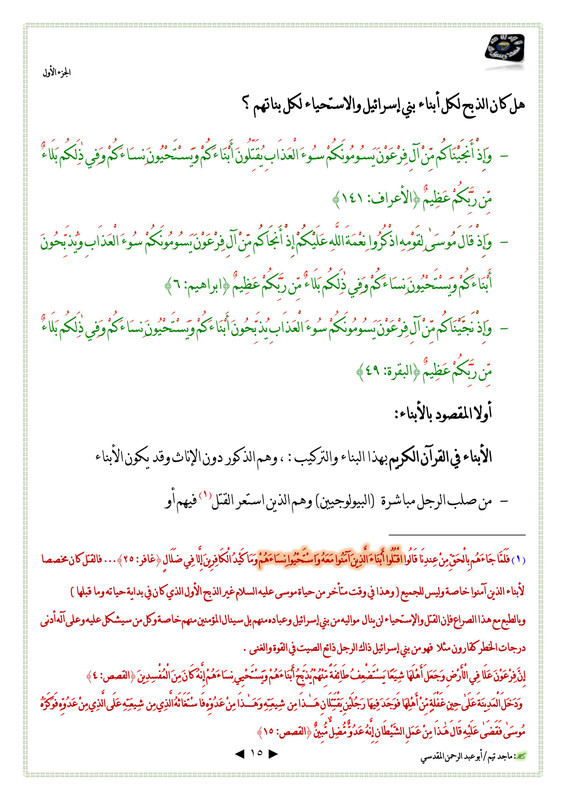 الجزء الأول
هل كان الذبح لكل أبناء بني إسرائيل والاستحياء لكل بناتهم ؟
– وَإِذْ أَنجَيْنَاكُم مِّنْ آلِ فِرْعَوْنَ يَسُومُونَكُمْ سُوءَ الْعَذَابِ يُقَتِّلُونَ أَبْنَاءَكُمْ وَيَسْتَحْيُونَ نِسَاءَكُمْ وَفِي ذَٰلِكُم بَلَاءٌ
مِّن رَّبِّكُمْ عَظِيمٌ ﴿الأعراف: ١٤١﴾
– وَإِذْ قَالَ مُوسَىٰ لِقَوْمِهِ اذْكُرُوا نِعْمَةَ اللَّهِ عَلَيْكُمْ إِذْ أَنجَاكُم مِّنْ آلِ فِرْعَوْنَ يَسُومُونَكُمْ سُوءَ الْعَذَابِ وَيُذَبِّحُونَ
أَبْنَاءَكُمْ وَيَسْتَحْيُونَ نِسَاءَكُمْ وَفِي ذَٰلِكُم بَلَاءٌ مِّن رَّبِّكُمْ عَظِيمٌ ﴿ابراهيم: ٦﴾
– وَإِذْ نَجَّيْنَاكُم مِّنْ آلِ فِرْعَوْنَ يَسُومُونَكُمْ سُوءَ الْعَذَابِ يُذَبِّحُونَ أَبْنَاءَكُمْ وَيَسْتَحْيُونَ نِسَاءَكُمْ وَفِي ذَٰلِكُم بَلَاءٌ
مِّن رَّبِّكُمْ عَظِيمٌ ﴿البقرة: ٤٩﴾
أولا المقصود بالأبناء:
الأبناء في القرآن الكريم بهذا البناء والتركيب : ، وهم الذكور دون الإناث وقد يكون الأبناء
– من صلب الرجل مباشرة (البيولوجيين) وهم الذين استعر القتل (١) فيهم أو
(١) فَلَمَّا جَاءَهُم بِالْحَقِّ مِنْ عِندِنَا قَالُوا اقْتُلُوا أَبْنَاءَ الَّذِينَ آمَنُوا مَعَهُ وَاسْتَحْيُوا نِسَاءَهُمْ وَمَا كَيْدُ الْكَافِرِينَ إِلَّا فِي ضَلَالٍ ﴿غافر: ٢٥﴾... فالقتل كان مخصصا
لأبناء الذين آمنوا خاصة وليس للجميع ( وهذا في وقت متأخر من حياة موسى عليه السلام غير الذبح الأول الذي كان في بداية حياته وما قبلها )
وبالطبع مع هذا الصراع فإن القتل والإستحياء لن ينال مواليه من بني إسرائيل وعباده منهم بل سينال المؤمنين منهم خاصة وكل من سيشكل عليه وعلى آله أدنى
درجات الخطر كقارون مثلا فهو من بني إسرائيل ذاك الرجل ذائع الصيت في القوة والغنى .
إِنَّ فِرْعَوْنَ عَلَا فِي الْأَرْضِ وَجَعَلَ أَهْلَهَا شِيَعًا يَسْتَضْعِفُ طَائِفَةً مِّنْهُمْ يُذَبِّحُ أَبْنَاءَهُمْ وَيَسْتَحْيِي نِسَاءَهُمْ إِنَّهُ كَانَ مِنَ الْمُفْسِدِينَ ﴿القصص: ٤﴾
وَدَخَلَ الْمَدِينَةَ عَلَىٰ حِينِ غَفْلَةٍ مِّنْ أَهْلِهَا فَوَجَدَ فِيهَا رَجُلَيْنِ يَقْتَتِلَانِ هَـٰذَا مِن شِيعَتِهِ وَهَـٰذَا مِنْ عَدُوِّهِ فَاسْتَغَاثَهُ الَّذِي مِن شِيعَتِهِ عَلَى الَّذِي مِنْ عَدُوِّهِ فَوَكَزَهُ
مُوسَىٰ فَقَضَىٰ عَلَيْهِ قَالَ هَـٰذَا مِنْ عَمَلِ الشَّيْطَانِ إِنَّهُ عَدُوٌّ مُّضِلٌّ مُّبِينٌ ﴿القصص: ١٥﴾
: ماجد تيم / أبو عبد الرحمن المقدسي
◄ ١٥ ►